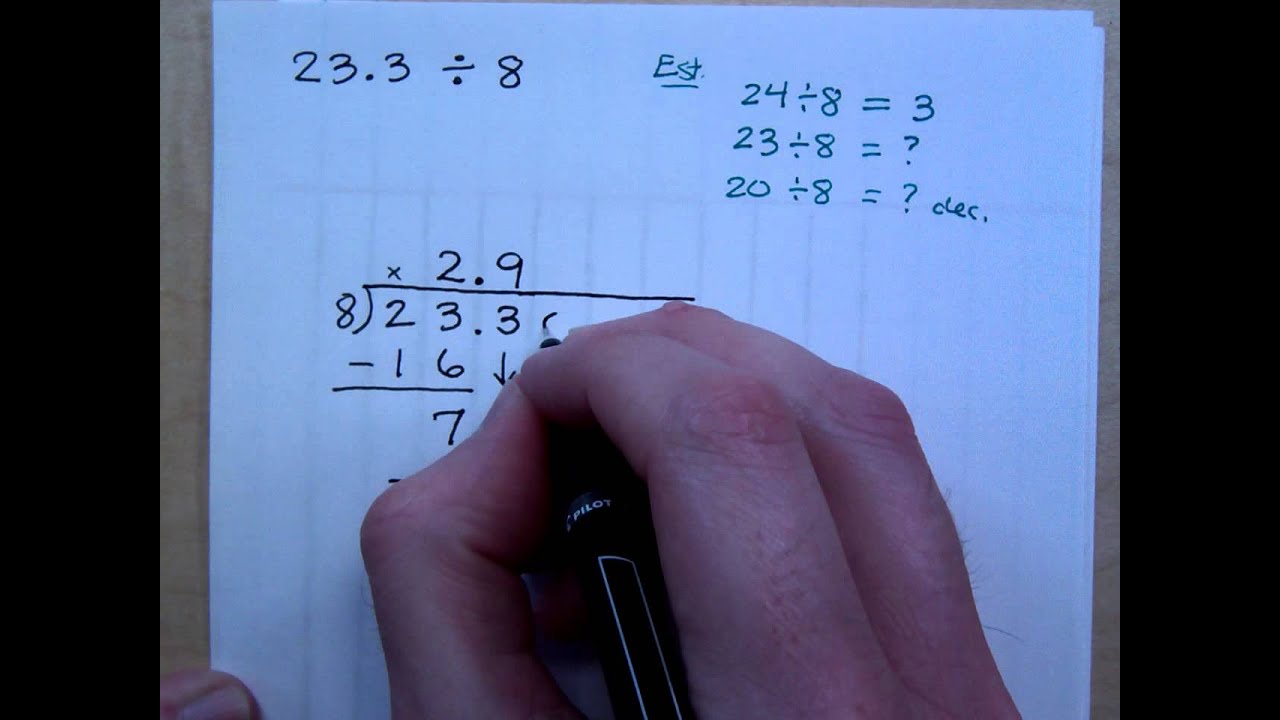 23.3 ÷ 8
Est.
24÷8 = 3
23÷8 = ?
20÷8 = ? dec.
× 2.9
8)23.3
-16↓
7
PILOT